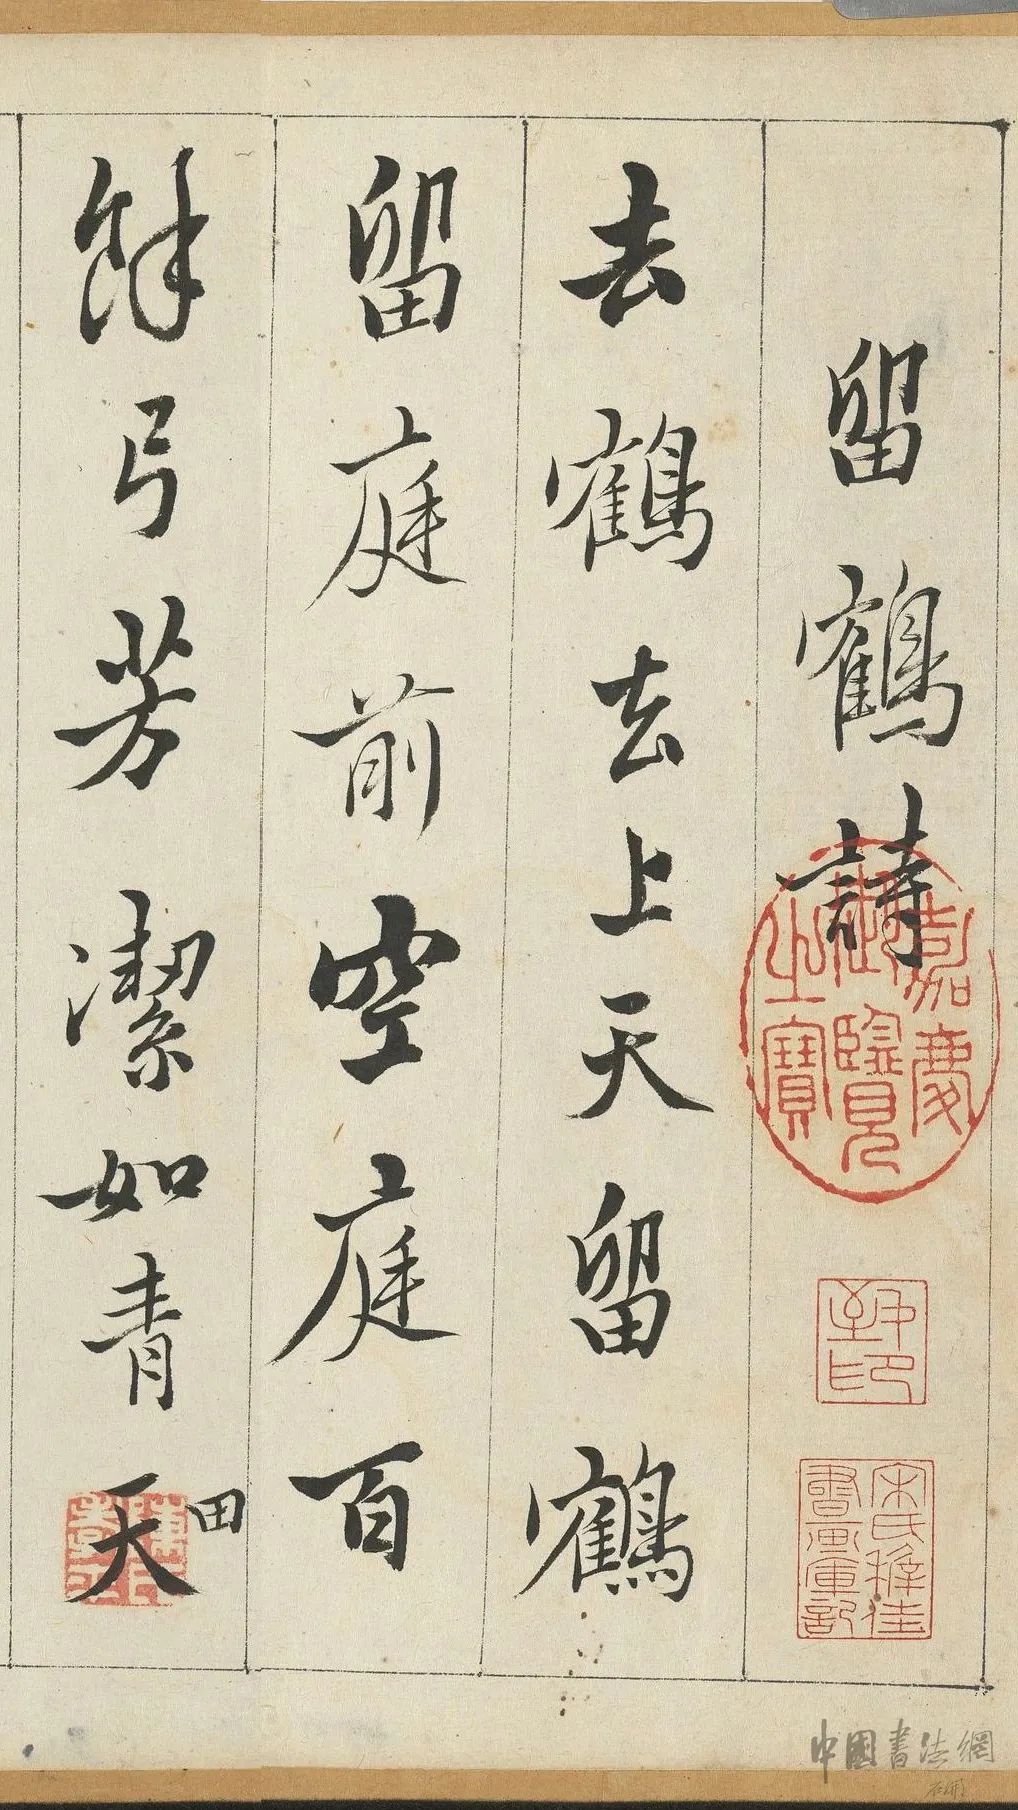 留鶴詩
去鶴去上天留鶴
留庭前空庭百
餘弓芳潔如青天
田
嘉慶御覽之寶
宋氏稺佳書画庫記
中國書法網